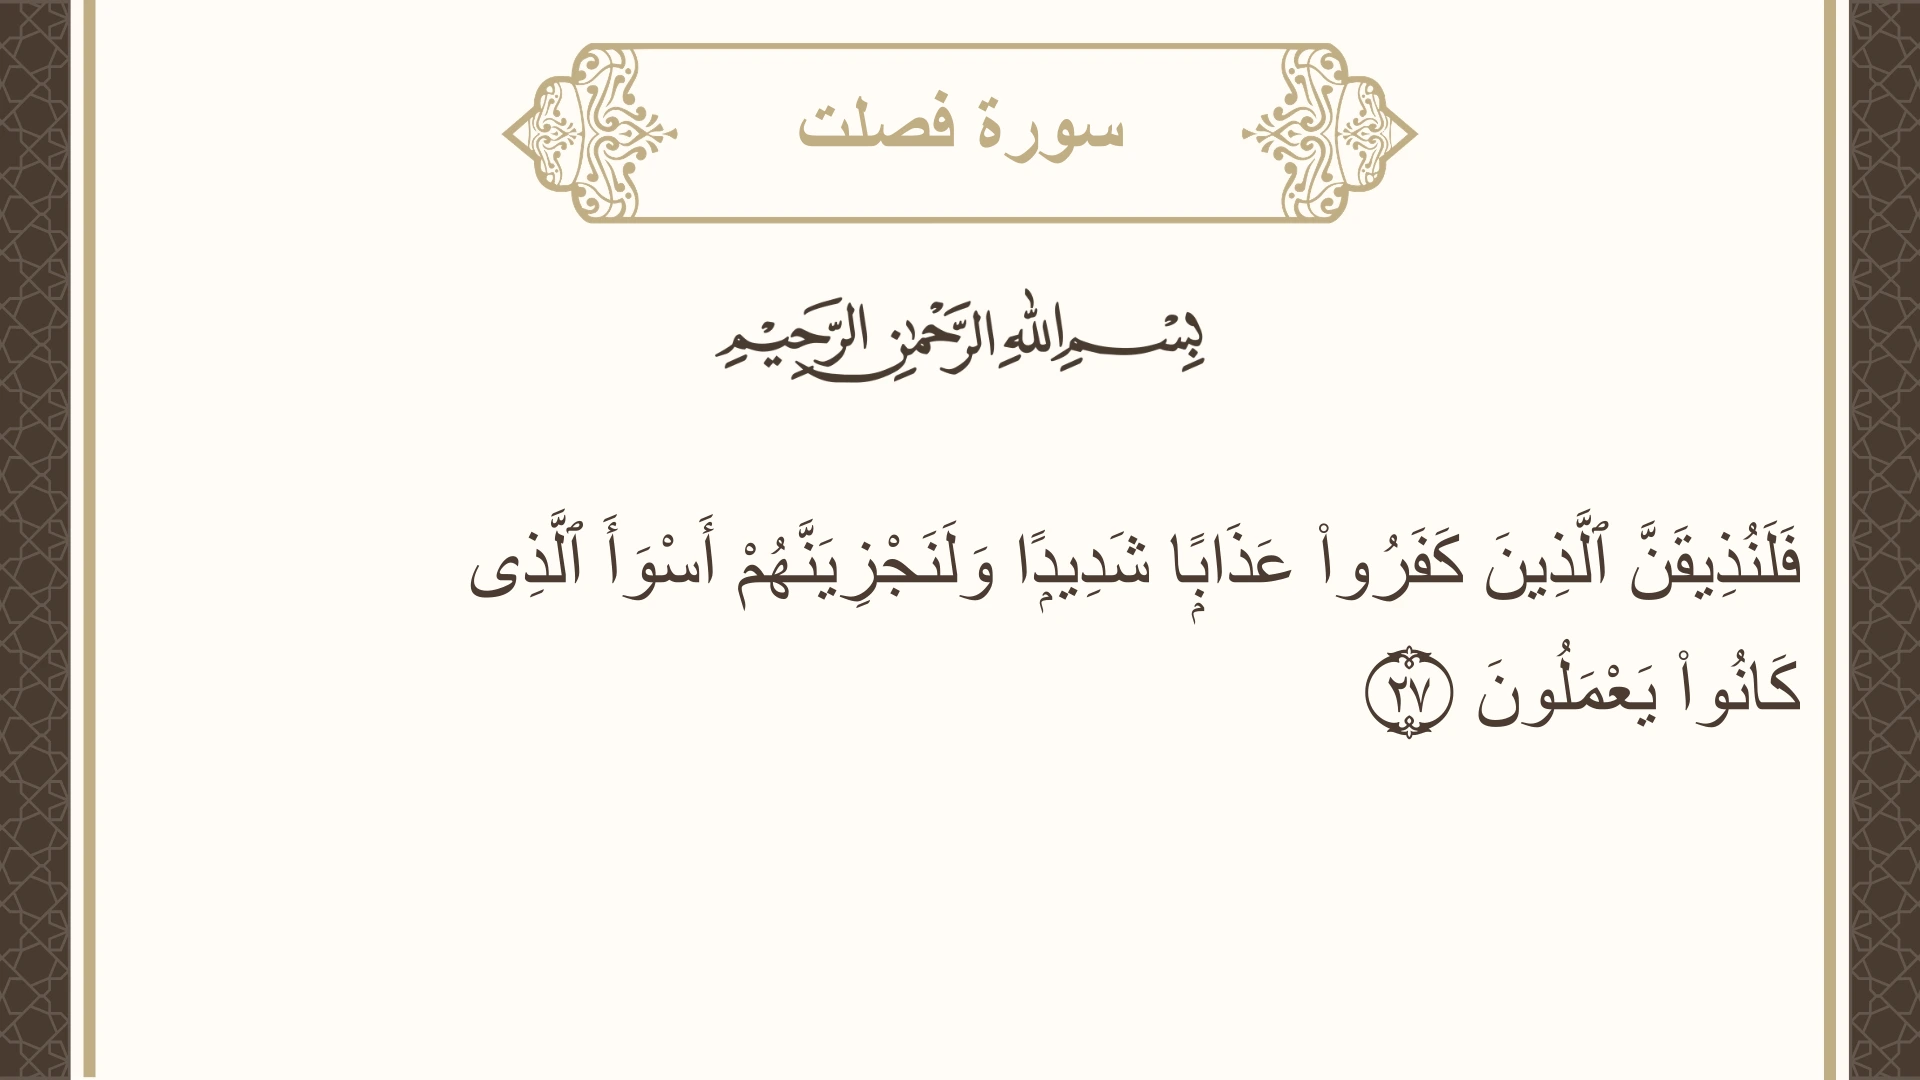 سورة فصلت
بِسْمِ اللهِ الرَّحْمٰنِ الرَّحِيْمِ
فَلَنُذِيقَنَّ ٱلَّذِينَ كَفَرُوا۟ عَذَابًۭا شَدِيدًۭا وَلَنَجْزِيَنَّهُمْ أَسْوَأَ ٱلَّذِى
كَانُوا۟ يَعْمَلُونَ ٢٧